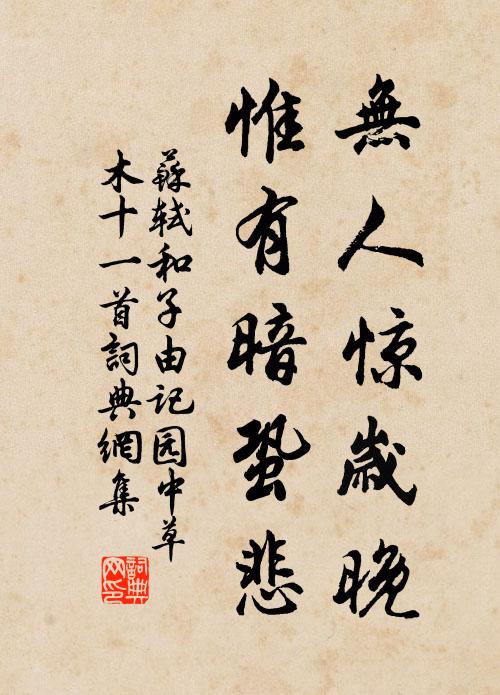 無人惊歲晚
惟有暗蛩悲
蘇軾和子由记园中草
木十一首詞典網集
詞典
网印